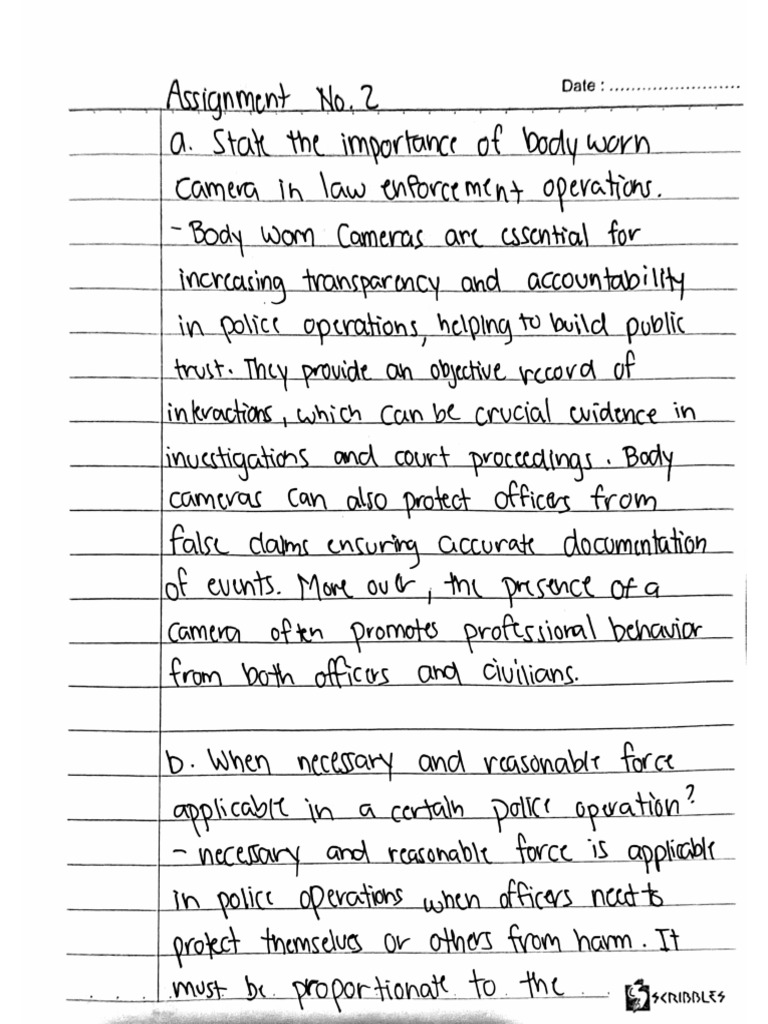 Date : ........................
Assignment No. 2
a. State the importance of body worn
Camera in law enforcement operations.
- Body Worn Cameras are essential for
increasing transparency and accountability
in police operations, helping to build public
trust. They provide an objective record of
interactions, which can be crucial evidence in
investigations and court proceedings. Body
cameras can also protect officers from
false claims ensuring accurate documentation
of events. More over, the presence of a
camera often promotes professional behavior
from both officers and civilians.
b. When necessary and reasonable force
applicable in a certain police operation?
- necessary and reasonable force is applicable
in police operations when officers need to
protect themselves or others from harm. It
must be proportionate to the
SCRIBBLES